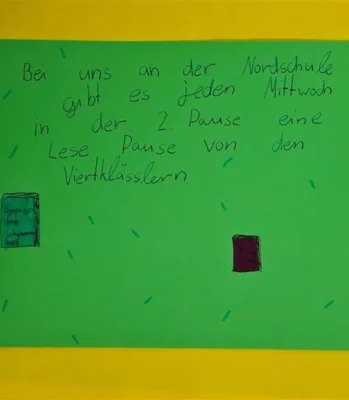 Bei uns an der Nordschule
gibt es jeden Mittwoch
in der 2. Pause eine
Lese Pause von den
Viertklässlern